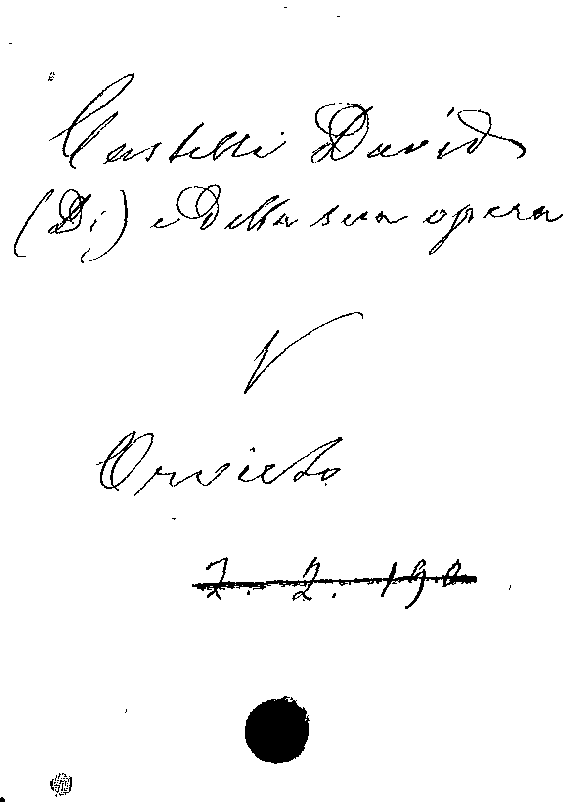 Castelli David
(Di) e Della sua opera
V
Orvieto
7. 2. 190